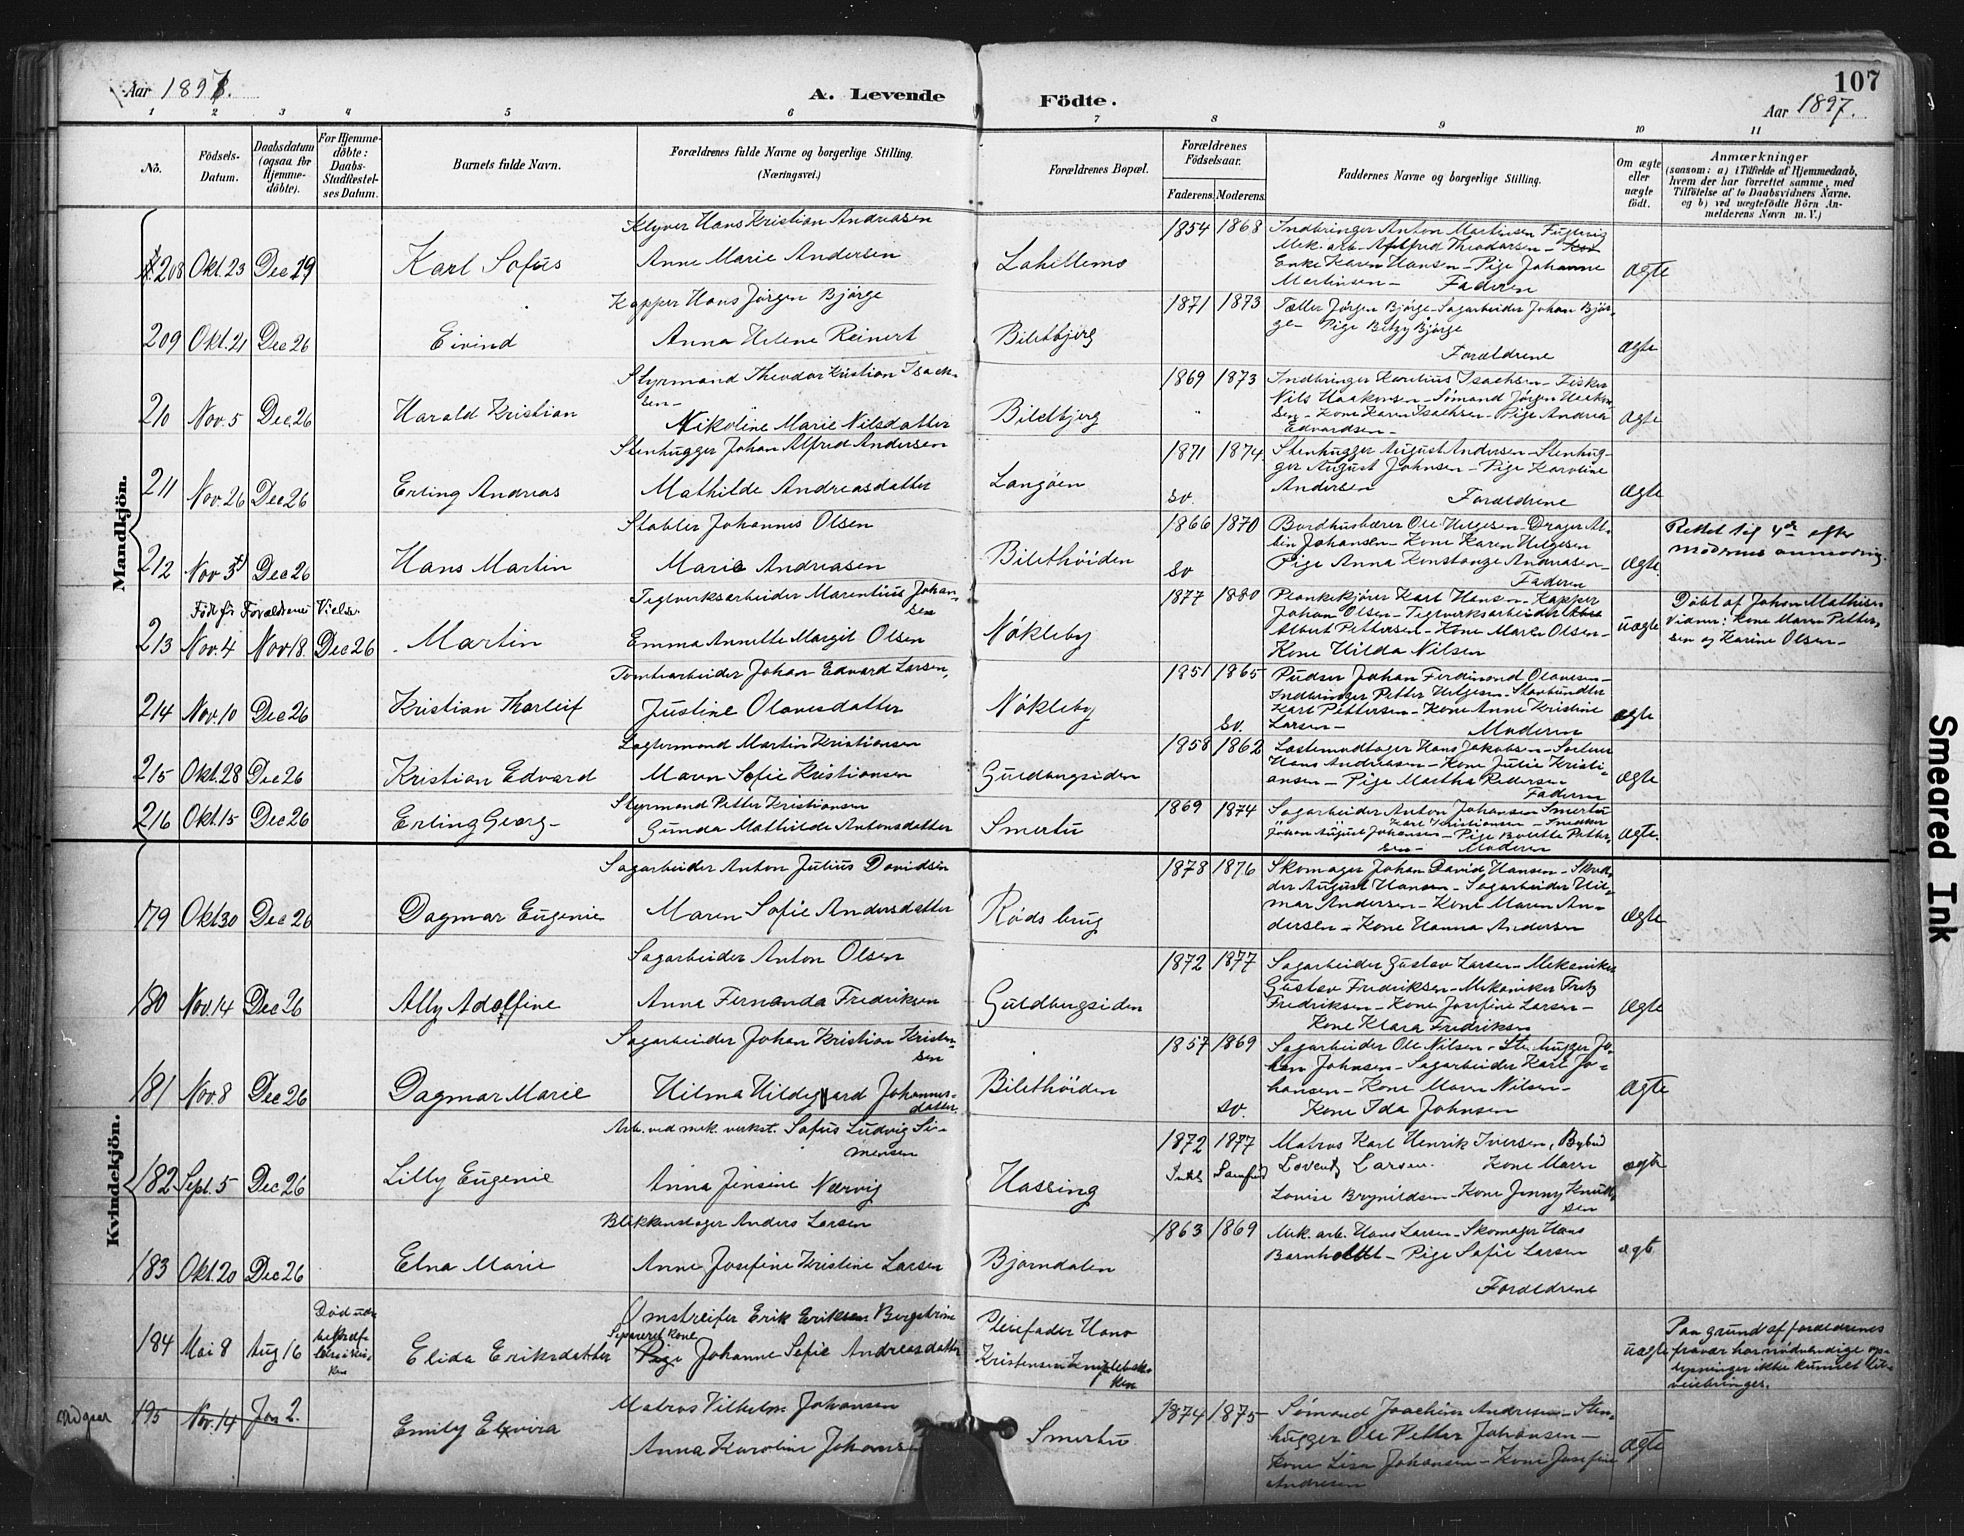 Aar 1897.
A. Levende
Födte.
107
Aar 1897.
1 2 3 4 5 6 7 8 9 10 11
No.
Födsels-Datum.
Daabsdatum (ogsaa for Hjemme-döbte).
For Hjemme-döbte: Daabs-Stadfestel-ses Datum.
Barnets fulde Navn.
Forældrenes fulde Navne og borgerlige Stilling. (Næringsvei.)
Forældrenes Bopæl.
Forældrenes Födselsaar.
Faderens. Moderens.
Faddernes Navne og borgerlige Stilling.
Om ægte eller uægte födt.
Anmærkninger
(saasom: a) i Tilfælde af Hjemmedaab, hvem der har forrettet samme, med Tilföielse af to Daabsvidners Navne. og b) ved uægtefödte Börn An-melderens Navn m. V.)
Mandkjön.
208 Okt. 23 Dec 19 Karl Sofus
Klyver Hans Kristian Andreasen
Anne Marie Andersen
Lahellemo
1854 1868
Indbringer Anton Martinsen Fuglevig
Mek. arb. Alfred Theodorsen
Enke Karen Hansen - Pige Johanne
Martinsen - Faderen
Ægte
209 Okt. 21 Dec 26 Eivind
Kapper Hans Jørgen Bjørge
Anna Helene Reinert
Biletbjerg
1871 1873
Tæller Jørgen Bjørge - Sagarbeider Johan Bjør-
ge - Pige Betzy Bjørge
Forældrene
Ægte
210 Nov. 5 Dec 26 Harald Kristian
Styrmand Theodor Kristian Isach-
sen -
Nikoline Marie Nilsdatter
Biletbjerg
1869 1873
Indbringer Karelius Isachsen - Fisker
Nils Haakonsen - Sømand Jørgen Haakon-
sen - Kone Karen Isachsen - Pige Andrea
Edvardsen -
Ægte
211 Nov. 26 Dec 26 Erling Andreas
Stenhugger Johan Alfred Andersen
Mathilde Andreasdatter
Langöen
1871 1874.
sv.
Stenhugger August Andersen - Stenhug-
ger August Johnsen - Pige Karoline
Andersen Forældrene
Ægte
212 Nov 3 Dec 26 Hans Martin
Stabler Johannes Olsen
Marie Andreasen
Bilethöiden
1866 1870
sv
Bordhusbærer Ole Helgesen - Drager Al-
bin Johansen - Kone Karen Helgesen
Pige Anna Konstanze Andreasen -
Faderen
Ægte.
Rettet til 4de efter
moderens anmodning.
Født før Forældrenes Vielse
213 Nov. 4 Nov 18. Dec 26 Martin
Teglverksarbeider Marentius Johan-
sen
Emma Annette Margit Olsen
Nökleby
1877 1880
Plankekjører Karl Hansen - Kapper
Johan Olsen - Teglverksarbeider
Albert Pettersen - Kone Maren Olsen -
Kone Hilda Nilsen
uægte
Döbt af Johan Mathisen
Vidner: Kone Maren Petter-
sen og Karine Olsen -
214 Nov. 10 Dec 26 Kristian Thorleif
Tomtearbeider Johan Edvard Larsen,
Justine Olavesdatter
Nökleby
1851 1865
sv.
Pudser Johan Ferdinand Olavesen -
Indbringer Petter Helgesen - Stavbundter
Karl Pettersen - Kone Anne Kristine
Larsen - Moderen
ægte
215 Okt. 28 Dec 26 Kristian Edvard
Lagtermand Martin Kristiansen
Maren Sofie Kristiansen
Guldbergsiden
1858 1862
Lastemodtager Hans Jakobsen - Sorterer
Hans Andreasen - Kone Julie Kristi-
ansen - Pige Martha Pedersen
Faderen
Ægte
216 Okt. 15 Dec 26 Erling Georg -
Styrmand Petter Kristiansen
Gunda Mathilde Antonsdatter
Smertu
1869 1874
Sagarbeider Anton Johansen Smertu
Karl Kristiansen - Snedker
Johan August Johansen - Pige Bolette Petter-
sen - Moderen
Ægte.
Kvindekjön.
179 Okt 30 Dec 26 Dagmar Eugenie
Sagarbeider Anton Julius Davidsen
Maren Sofie Andersdatter
Röds brug
1878 1876
Skomager Johan David Hansen - Skræd-
der August Hansen - Sagarbeider Hil-
mar Andersen - Kone Maren An-
dersen - Kone Hanna Andersen
Ægte
180 Nov. 14 Dec 26 Ally Adolfine
Sagarbeider Anton Olsen
Anna Fernanda Fredriksen
Guldbergsiden
1872 1877
Sagarbeider Gustav Larsen - Mekaniker
Gustav Fredriksen - Mekaniker Fritz
Fredriksen - Kone Josefine Larsen -
Kone Klara Fredriksen
Ægte
181 Nov. 8 Dec 26 Dagmar Marie
Sagarbeider Johan Kristian Kristen-
sen
Hilma Hildegard Johannes-
datter.
Bilethöiden
1857 1869
sv.
Sagarbeider Ole Nilsen - Stenhugger Jo-
han Johnsen - Sagarbeider Karl Jo-
hansen - Kone Maren Nilsen -
Kone Ida Johnsen
Ægte
182 Sept. 5 Dec 26 Lilly Eugenie
Arb. ved mek. verkst. Sofus Ludvig Si-
mensen
Anna Jensine Nærvig
Hassing
1872 1877
Matros Karl Henrik Iversen, Bybud
Lorentz Larsen. Kone Maren
Lovise Brynildsen - Kone Jenny Knudt-
sen
ægte
183 Okt. 20 Dec 26 Elna Marie
Blikkenslager Anders Larsen
Anne Josefine Kristine Larsen
Bjørndalen
1863 1869
Mek. arb. Hans Larsen - Skomager Hans
Barnholdt - Pige Sofie Larsen
Forældrene
ægte
184 Mai 8 Aug 16
Elida Eriksdatter
Omstreifer Erik Eriksen Bergstrøm
Separeret kone
Pige Johanne Sofie Andreasdatter
Pleiefader Hans
Kristensen
uægte
Paa grund af forældrenes
fravær har nödvendige op-
lysninger ikke kunnet til-
veiebringes.
195 Nov. 14 Jan 2. Emily Elvira
Matros Vilhelm Johansen
Anna Karoline Johansen
Smertu
1874 1875
Sømand Joachim Andresen - Sten-
hugger Ole Petter Johansen -
Kone Lisa Johansen - Kone Josefine
Andresen
Ægte
Smeared Ink